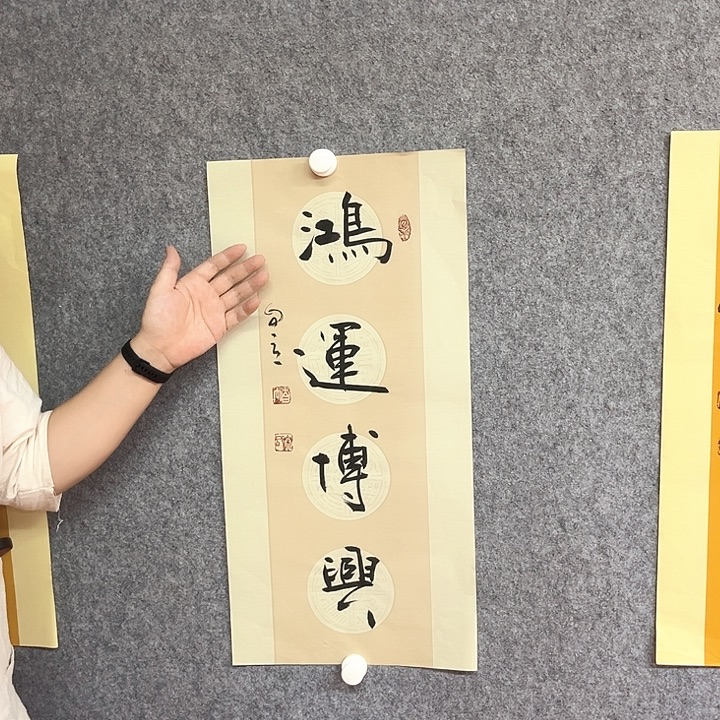 鴻運博興